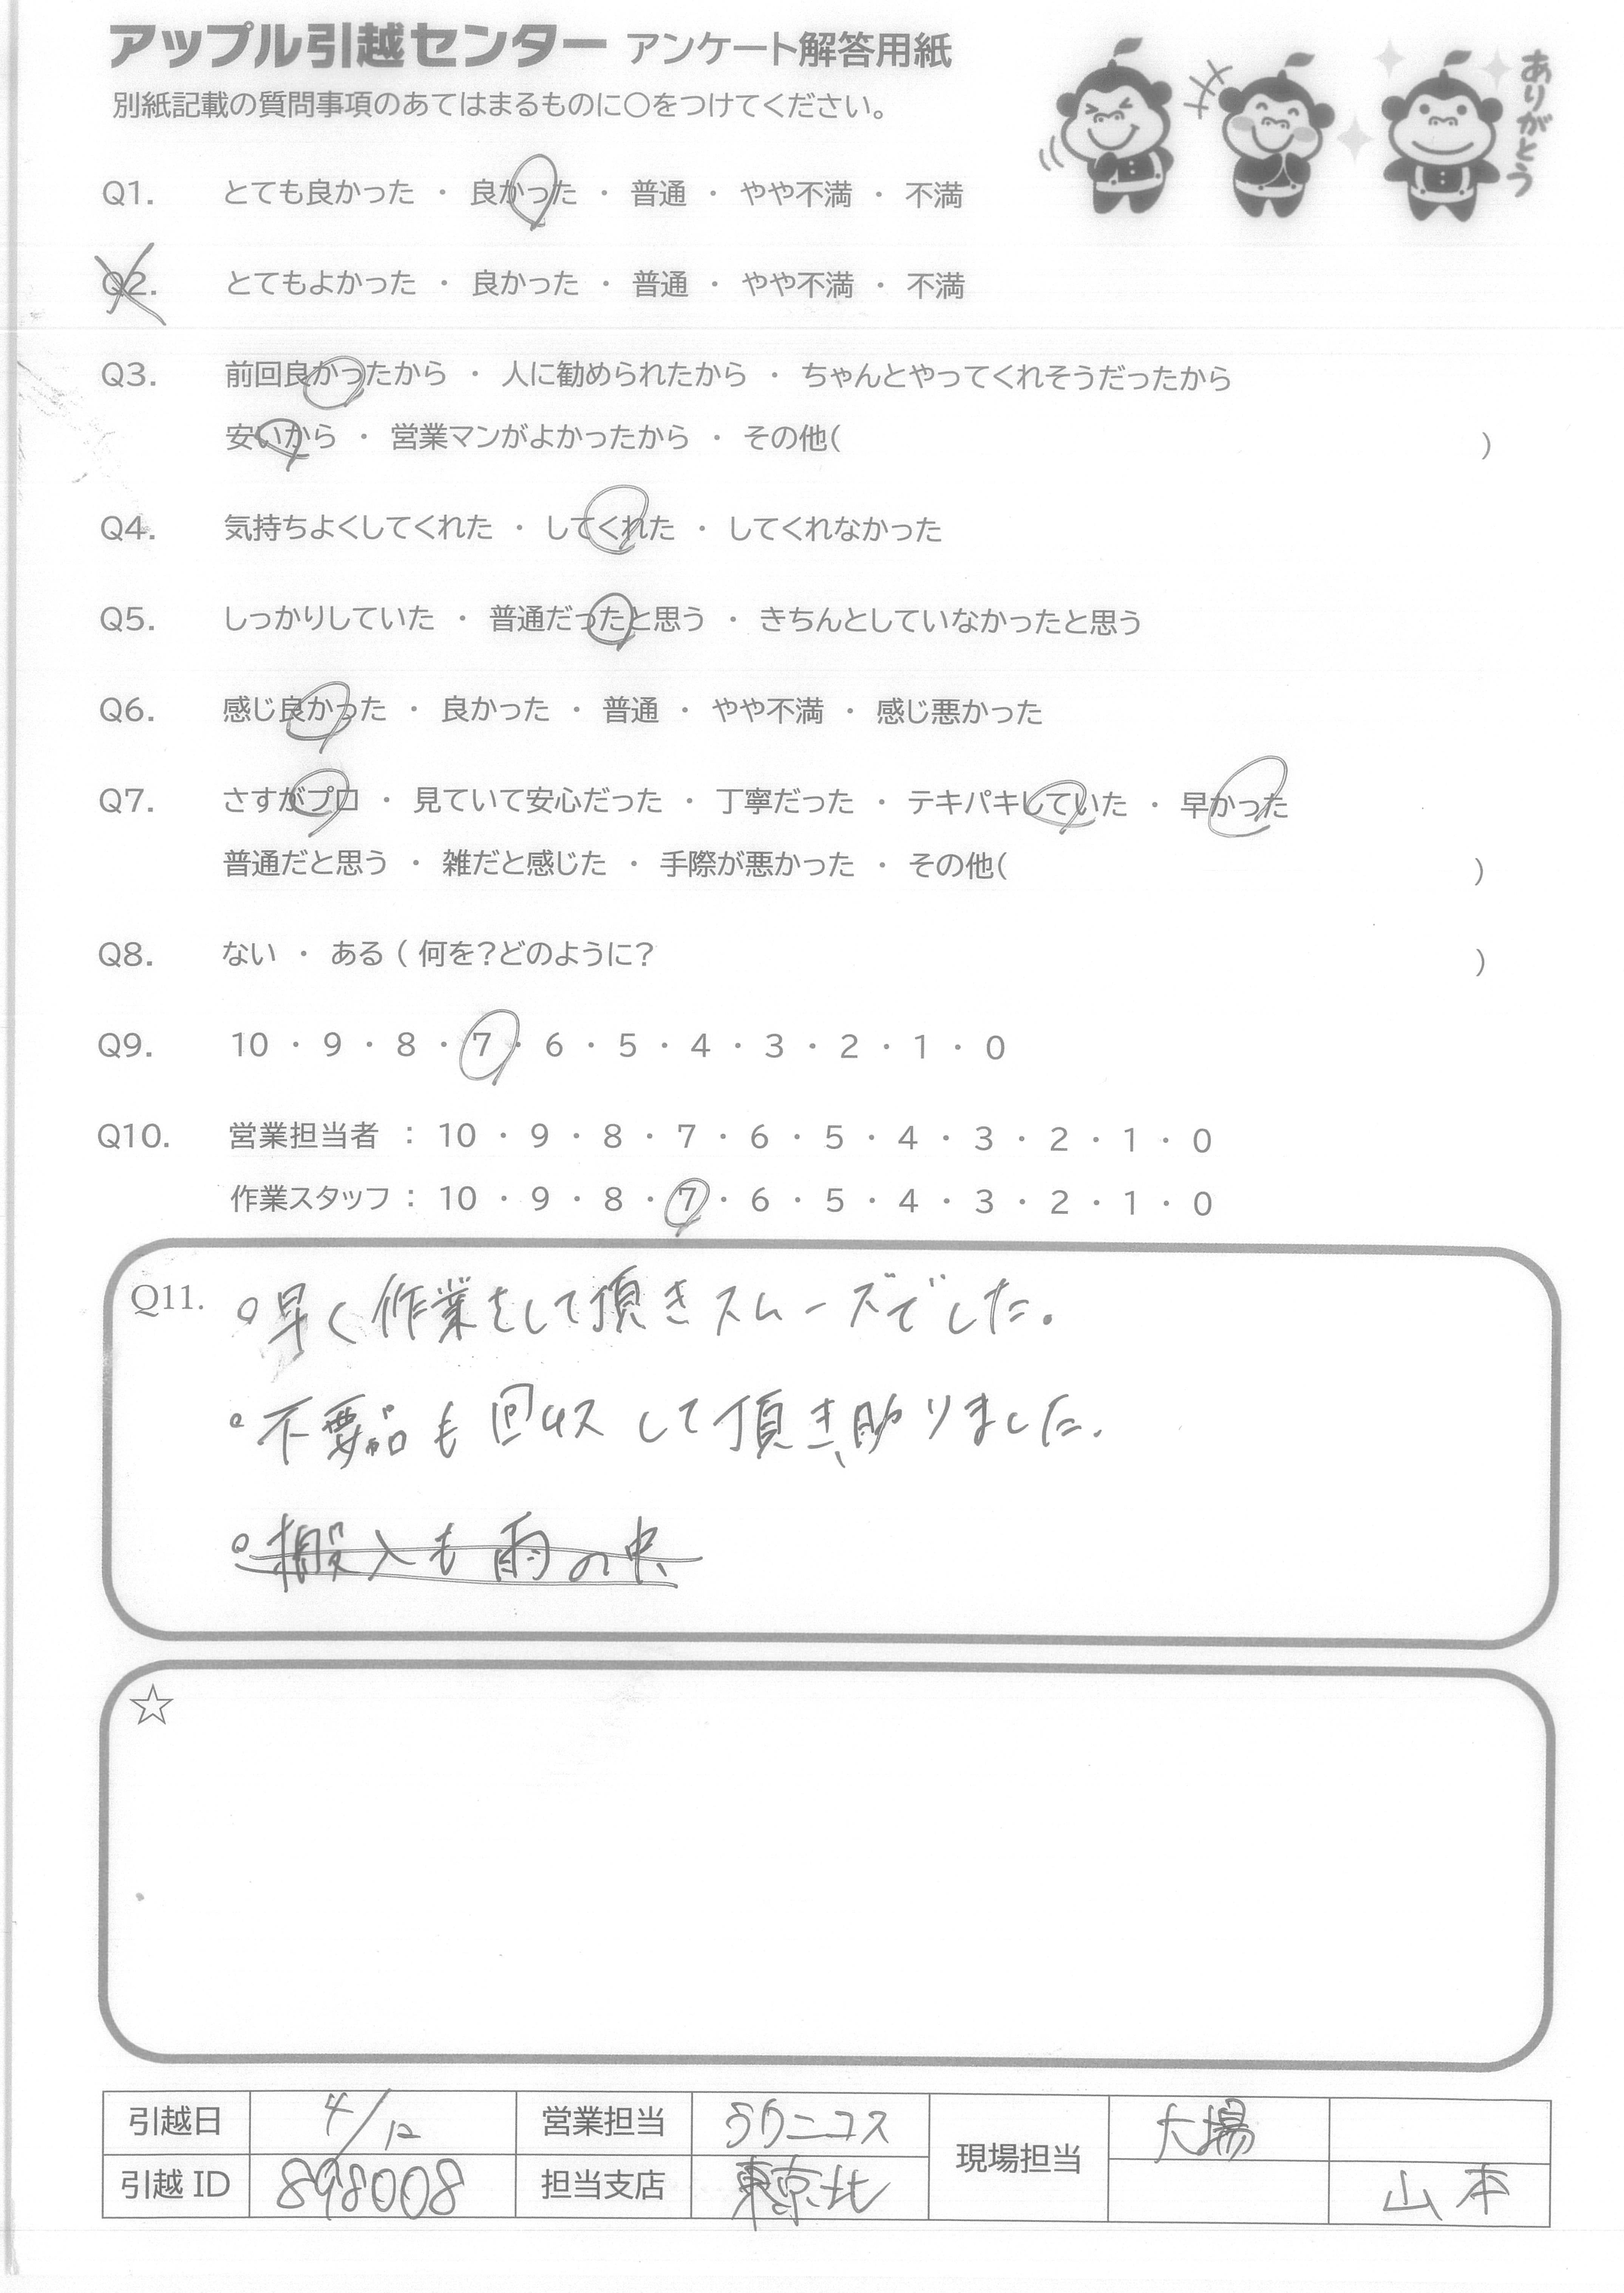 アップル引越センター アンケート解答用紙
別紙記載の質問事項のあてはまるものに○をつけてください。
ありがとう
Q1. とても良かった ・ 良かった ・ 普通 ・ やや不満 ・ 不満
Q2. とてもよかった ・ 良かった ・ 普通 ・ やや不満 ・ 不満
Q3. 前回良かったから ・ 人に勧められたから ・ ちゃんとやってくれそうだったから
安いから ・ 営業マンがよかったから ・ その他( )
Q4. 気持ちよくしてくれた ・ してくれた ・ してくれなかった
Q5. しっかりしていた ・ 普通だったと思う ・ きちんとしていなかったと思う
Q6. 感じ良かった ・ 良かった ・ 普通 ・ やや不満 ・ 感じ悪かった
Q7. さすがプロ ・ 見ていて安心だった ・ 丁寧だった ・ テキパキしていた ・ 早かった
普通だと思う ・ 雑だと感じた ・ 手際が悪かった ・ その他( )
Q8. ない ・ ある ( 何を?どのように? )
Q9. 10 ・ 9 ・ 8 ・ 7 ・ 6 ・ 5 ・ 4 ・ 3 ・ 2 ・ 1 ・ 0
Q10. 営業担当者 : 10 ・ 9 ・ 8 ・ 7 ・ 6 ・ 5 ・ 4 ・ 3 ・ 2 ・ 1 ・ 0
作業スタッフ : 10 ・ 9 ・ 8 ・ 7 ・ 6 ・ 5 ・ 4 ・ 3 ・ 2 ・ 1 ・ 0
Q11. ○早く作業をして頂きスムーズでした。
○不要品も回収して頂き、助りました.
○搬入も雨の中、
☆
引越日 4/12 営業担当 現場担当 大場
引越 ID 898008 担当支店 東京北 山本